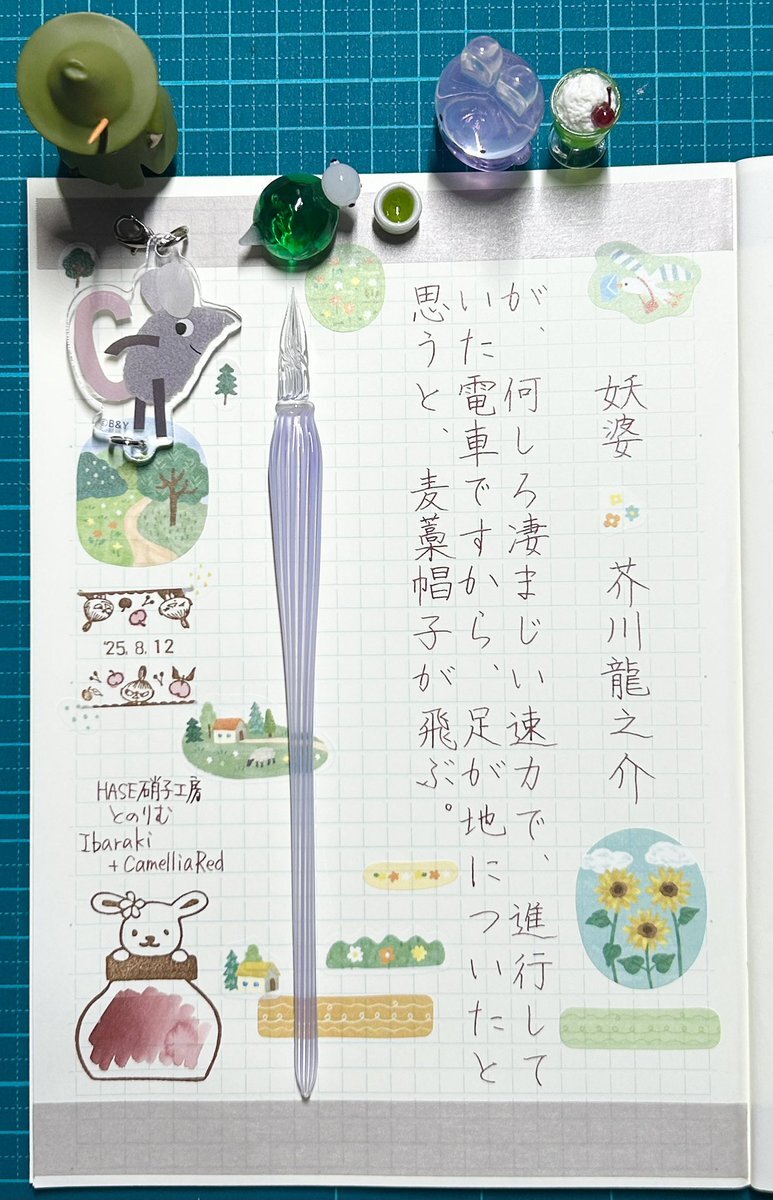 妖婆 芥川龍之介
が、何しろ凄まじい速力で、進行して
いた電車ですから、足が地についたと
思うと、麦藁帽子が飛ぶ。
©B&Y
'25. 8. 12
HASE硝子工房
とのりむ
Ibaraki
+ Camellia Red